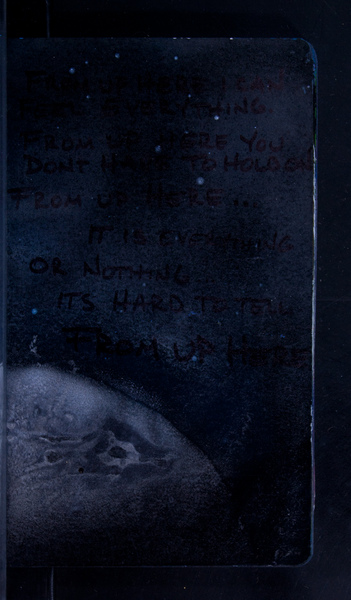 FROM UP HERE I CAN
FEEL EVERYTHING.
FROM UP HERE YOU
DONT HAVE TO HOLD ON
FROM UP HERE...
IT IS EVERYTHING
OR NOTHING
ITS HARD TO TELL
FROM UP HERE